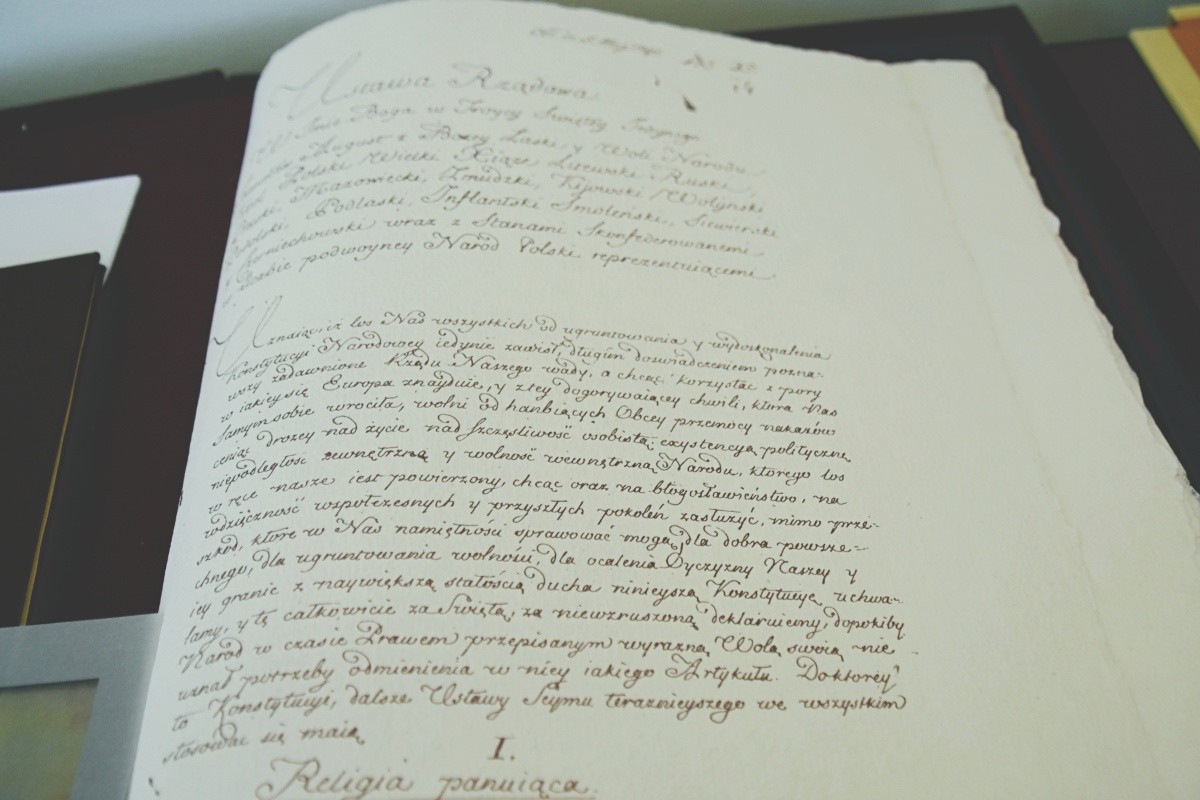 Ustawa Rządowa
W Imie Boga w Troycy Swiętey Jedynego
August z Bozey Łaski y Woli Narodu
Krol Polski Wielki Xiąże Litewski Ruski,
Pruski, Mazowiecki, Zmudzki, Kijowski Wołyński
Podolski, Podlaski, Inflantski Smoleński, Siewierski
y Czerniechowski wraz z Stanami Skonfederowanemi
w liczbie podwoyney Naród Polski reprezentuiącemi
Uznaiąc, iż los Nas wszystkich od ugruntowania y wydoskonalenia
Konstytucyi Narodowey iedynie zawisł, długim doswiadczeniem pozna-
wszy zadawnione Rządu Naszego wady, a chcąc korzystać z pory
w iakiey się Europa znayduie, y z tey dogorywaiącey chwili, ktora Nas
samym sobie wrociła, wolni od hanbiących Obcey przemocy nakazów
ceniąc drozey nad życie nad szczęsliwość osobistą; exystencyą polityczną
niepodległość zewnętrzną y wolność wewnętrzną Narodu, ktorego los
w ręce nasze iest powierzony, chcąc oraz na błogosławieństwo, na
wdzięczność wspołczesnych y przyszłych pokoleń zasłużyć, mimo prze-
szkod, ktore w Nas namiętności sprawować mogą, dla dobra powsze-
chnego, dla ugruntowania wolności, dla ocalenia Oyczyzny Naszey y
iey granic z naywiększą stałością ducha ninieyszą Konstytucyę uchwa-
lamy, y tę całkowicie za Swiętą, za niewzruszoną deklaruiemy, dopokiby
Narod w czasie Prawem przepisanym wyrazną Wolą swoią nie
uznał potrzeby odmienienia w niey iakiego Artykułu. Do ktorey
to Konstytucyi, dalsze Ustawy Seymu terazneyszego we wszystkim
stosować się maią
I.
Religia panuiąca.